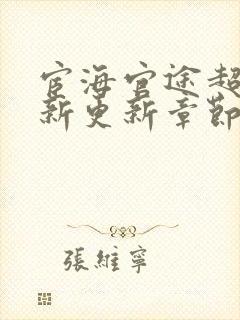 宦海官途超
新更新章節
張維寧